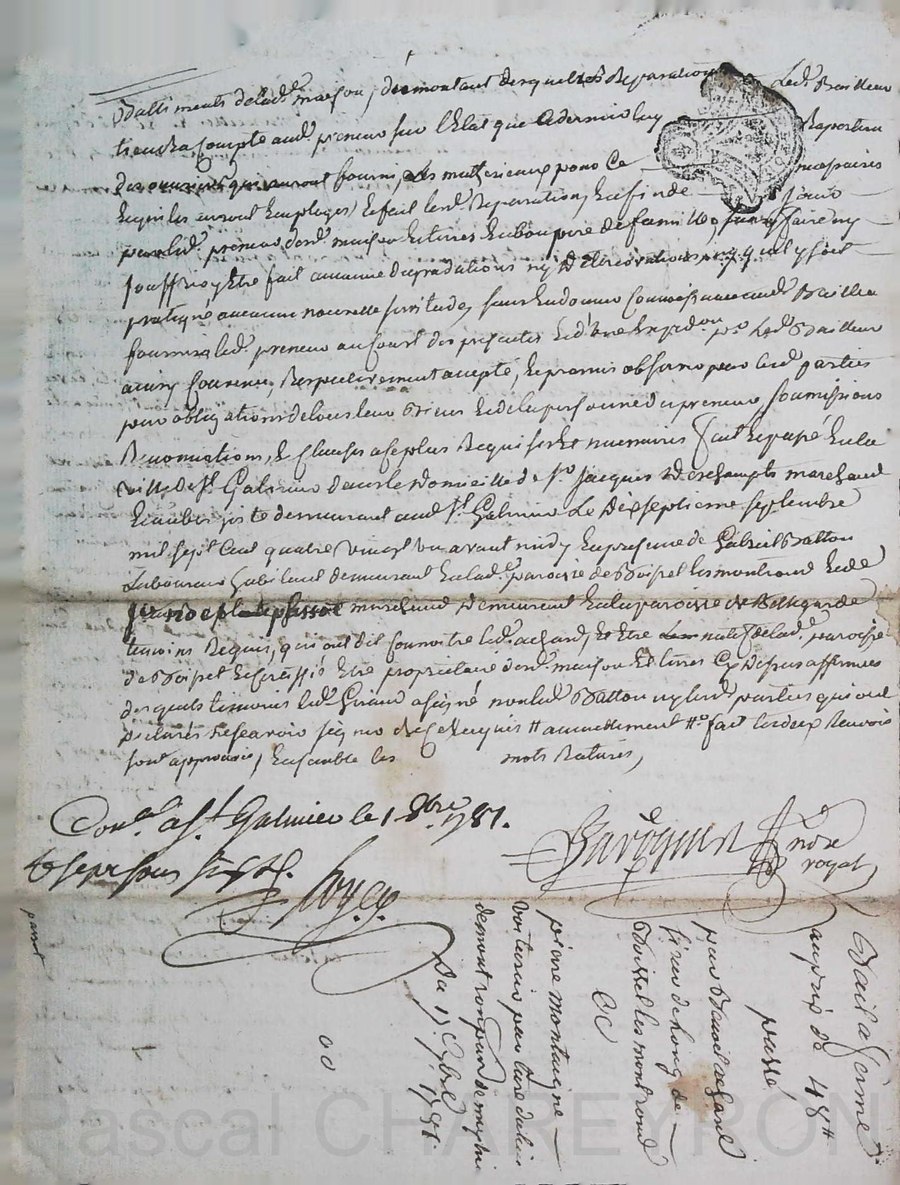 Battiments delad.e maison, du montant desquelles Reparations Led. Bailleur
tiendra Compte aud. preneur sur l'Etat que Cedernier luy Raportera
des ouvriers qui auront fourni, les matheriaux pour Ce necessaires
Equi les auront Employes, Et fait lesd. Reparations, Enfin de jouir
par led. preneur desd. maison Et terres En bon pere de famille, sans y faire ny
souffrir y Etre fait aucune degradations ny Deteriorations, ny quil y soit
pratiqué aucune nouvelle servitude, sans En donner Connoissance aud. Bailleur
fournira led. preneur au Coust des presentes Et d'une Expedon. po. Led. Bailleur
ainsy Convenu, Respectivement accepté, Et promis observer par lesd. parties
pour obligations de tous leur Biens Et de la personne du preneur soumissions
Renonciations, Et Clauses a Ce plus Requises Et necessaires fait Et passé En la
ville de St. Galmier dans le Domicille de Sr. Jacques Deschampts marchand
Et aubergiste demeurant aud. St. Galmier Le Dixseptieme septembre
mil sept Cent quatre vingt un avant midy En presence de Gabriel Batton
Laboureur habitant demeurant En lad. paroisse de Boisset les montrond Et de
marchand Demeurant En la paroisse de Bellegarde
temoins Requis, qui ont dit Connoitre led. achard, Et Etre natif de lad. paroisse
de Boisset Et Cressié Etre proprietaire desd. maison Et terres Cy Dessus affermées
desquels temoins led. Giraud a signé non led. Batton ny lesd. parties qui ont
declarés ne scavoir signer de Ce Enquis # annuellement #o fait les deux Renvois
sont approuvés, Ensemble les mots Raturés,
Con.lé a St. Galmier le 1 8bre 1781.
nore
royal
Bail a ferme
au prix de 48tt
passé,
par achard
de
Boisset les montrond
a
pierre montaigne
Du 17 7bre 1781
Pascal CHAREYRON